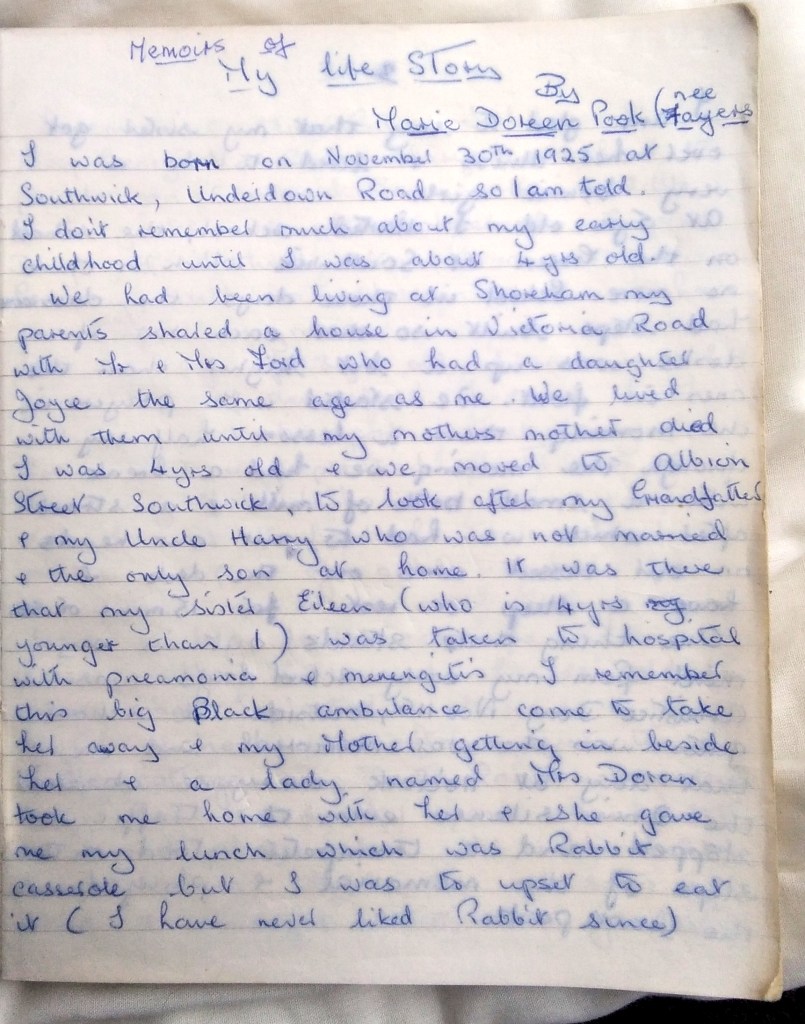 Memoirs of
My life Story
By
Marie Doreen Pook (nee
Tayers
I was born on November 30th 1925 at
Southwick, Underdown Road so I am told.
I don't remember much about my early
childhood until I was about 4yrs old.
We had been living at Shoreham my
parents shared a house in Victoria Road
with Mr & Mrs Ford who had a daughter
Joyce the same age as me. We lived
with them until my mothers mother died
I was 4yrs old & we moved to Albion
Street Southwick, to look after my Grandfather
& my Uncle Harry who was not married
& the only son at home. It was there
that my sister Eileen (who is 4yrs
younger than I) was taken to hospital
with pneamonia & menengitis I remember
this big Black ambulance come to take
her away & my Mother getting in beside
her & a lady named Mrs Doran
took me home with her & she gave
me my lunch which was Rabbit
casserole but I was to upset to eat
it (I have never liked Rabbit since)